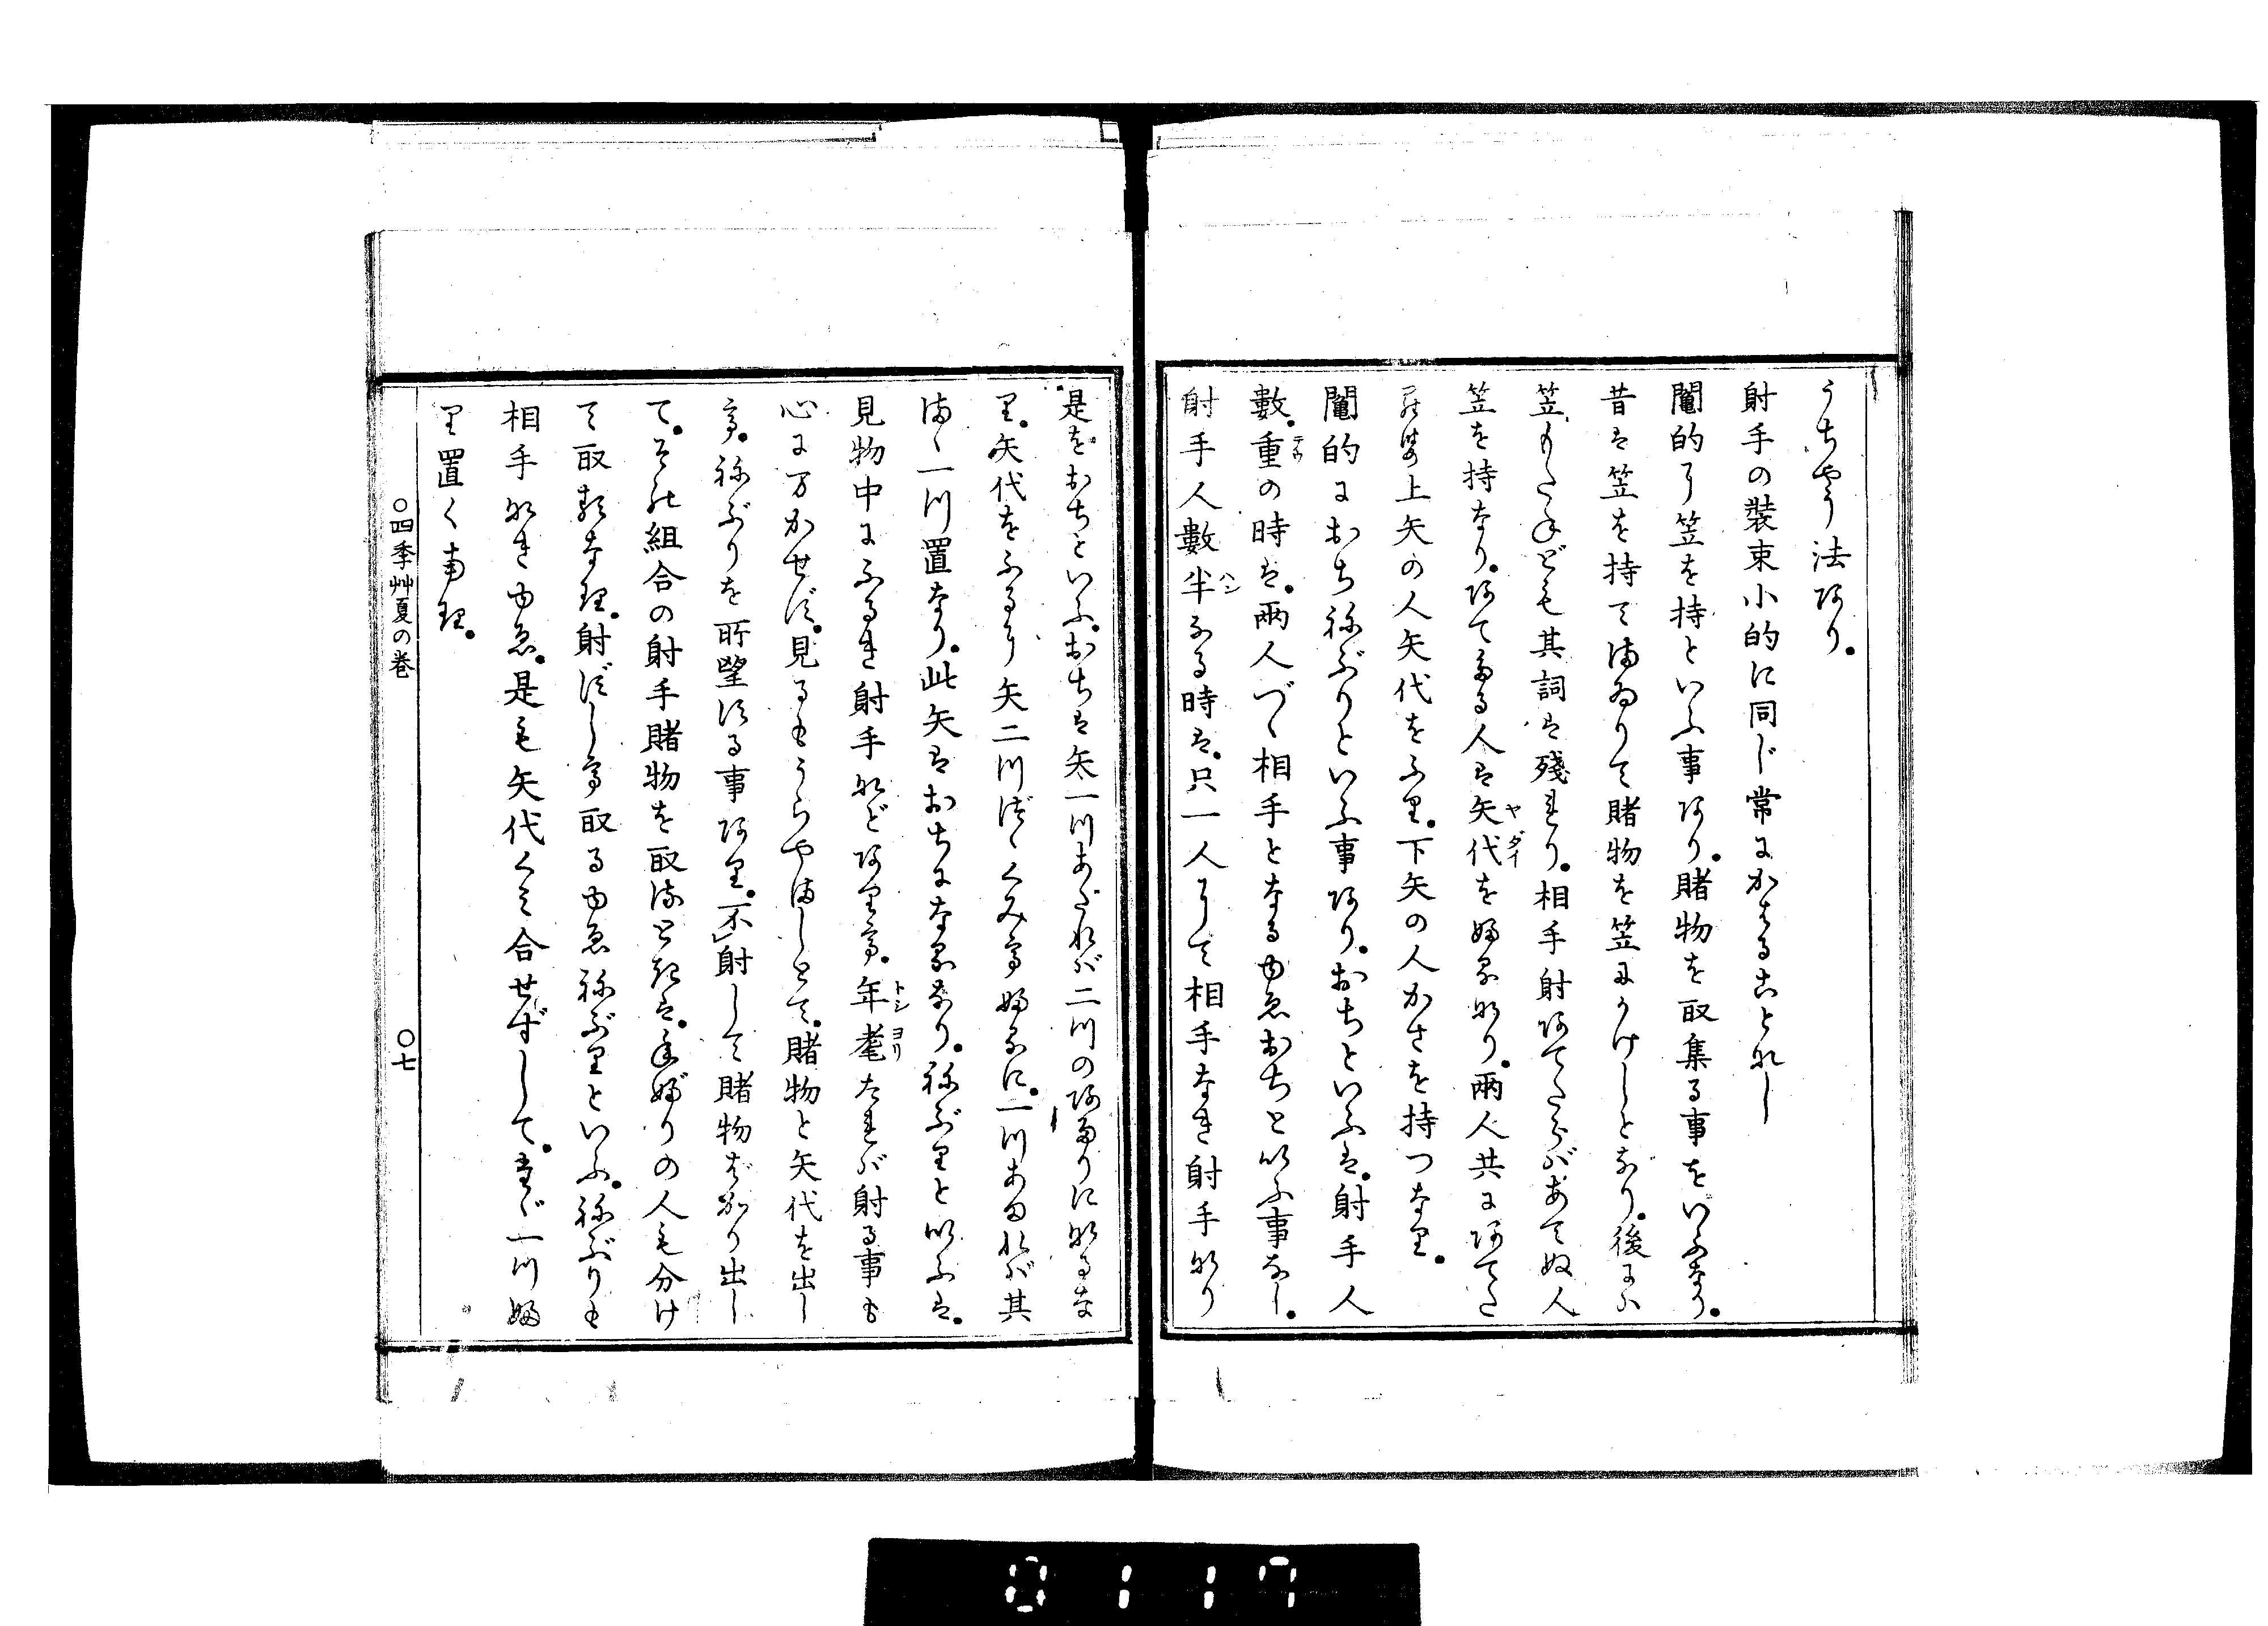 うちやう法あり。
射手の裝束小的に同じ常にかはることなし
鬮的に笠を持といふ事あり。賭物を取集る事をいふなり。
昔は笠を持てまゐりて賭物を笠にうけしとなり。後には
笠もたねども其詞は殘れり。相手射あてたらばあてぬ人
笠を持なり。あてたる人は矢代をふるなり。兩人共にあてた
らば上矢の人矢代をふり。下矢の人かさを持つなり。
鬮的におちねぶりといふ事あり。おちといふは。射手人
數。重の時は。兩人づゝ相手となるゆゑおちといふ事なし。
射手人數半なる時は。只一人にて相手なき射手なり
是をおちといふ。おちは矢一つあたれば二つのあたりになるな
り。矢代をふるに矢二つづゝくみてふるに。一つあまれば其
まゝ一つ置なり。此矢はおちになるなり。ねぶりといふは。
見物中にふるき射手などありて。年耄たれば射る事も
心にまかせず。見るもうらやましとて。賭物と矢代を出し
て。ねぶりを所望する事あり。不射して賭物ばかり出し
て。その組合の射手賭物を取たるときは。ねぶりの人も分け
て取るなり。射ずして取るゆゑねぶりといふ。ねぶりも
相手なきゆゑ。是も矢代くみ合せずして。たゞ一つふ
り置くなり。
○四季艸夏の巻
○七
0117